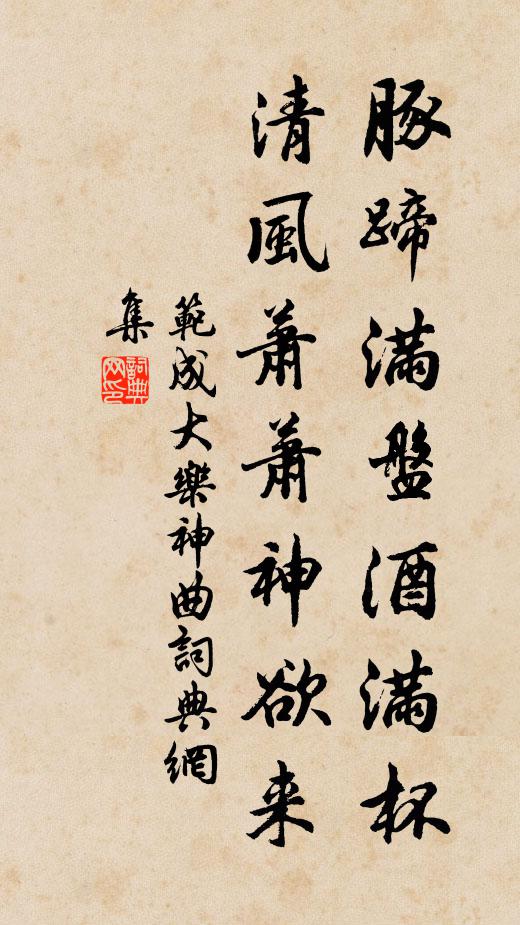 豚蹄滿盤酒滿杯
清風蕭蕭神欲来
範成大樂神曲詞典網
集
詞典
网印